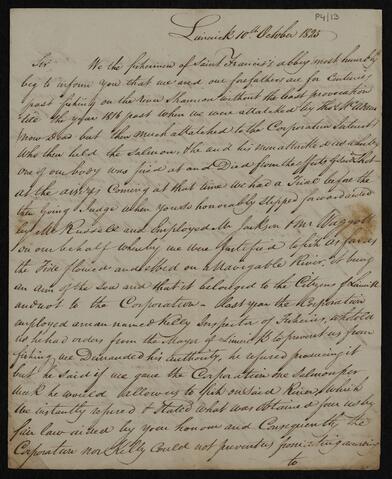 P4/13
Limerick 10th October 1825
Sir We the fishermen of Saint Francis's abbey most humbly
beg to inform you that we and our forefathers are for Centuries
past fishing on the river Shannon without the least provocation
till the year 1816 past when we were attacked by the
Now Dead but then much attached to the Corporation Interest
Who then held the Salmon, He and his men attacked us whereby
one of our body was fired at and Died from the effects of the Shot
at the assizes Coming at that time we had a Trial before the
then Going Judge when you honorably stepped forward aided
by Mr Russell and Employed Mr Jackson & Mr
on our behalf whereby we were Justified to fish as far as
the Tide flowed and ebbed on a Navigable River, it being
an arm of the Sea and that it belonged to the Citizens of Limerick
and not to the Corporation - last year the Corporation
employed a man named Kelly Inspector of Fisheries, who told
us he had orders from the Mayor of Limerick to prevent us from
fishing, we Demanded his authority, he refused producing it
but he said if we gave the Corporation one Salmon per
week he would allow us to fish on said River, Which
we instantly refused & stated what was obtained for us by
fair law aided by your honour and Consequently the
Corporation nor Kelly Could not prevent us from
to